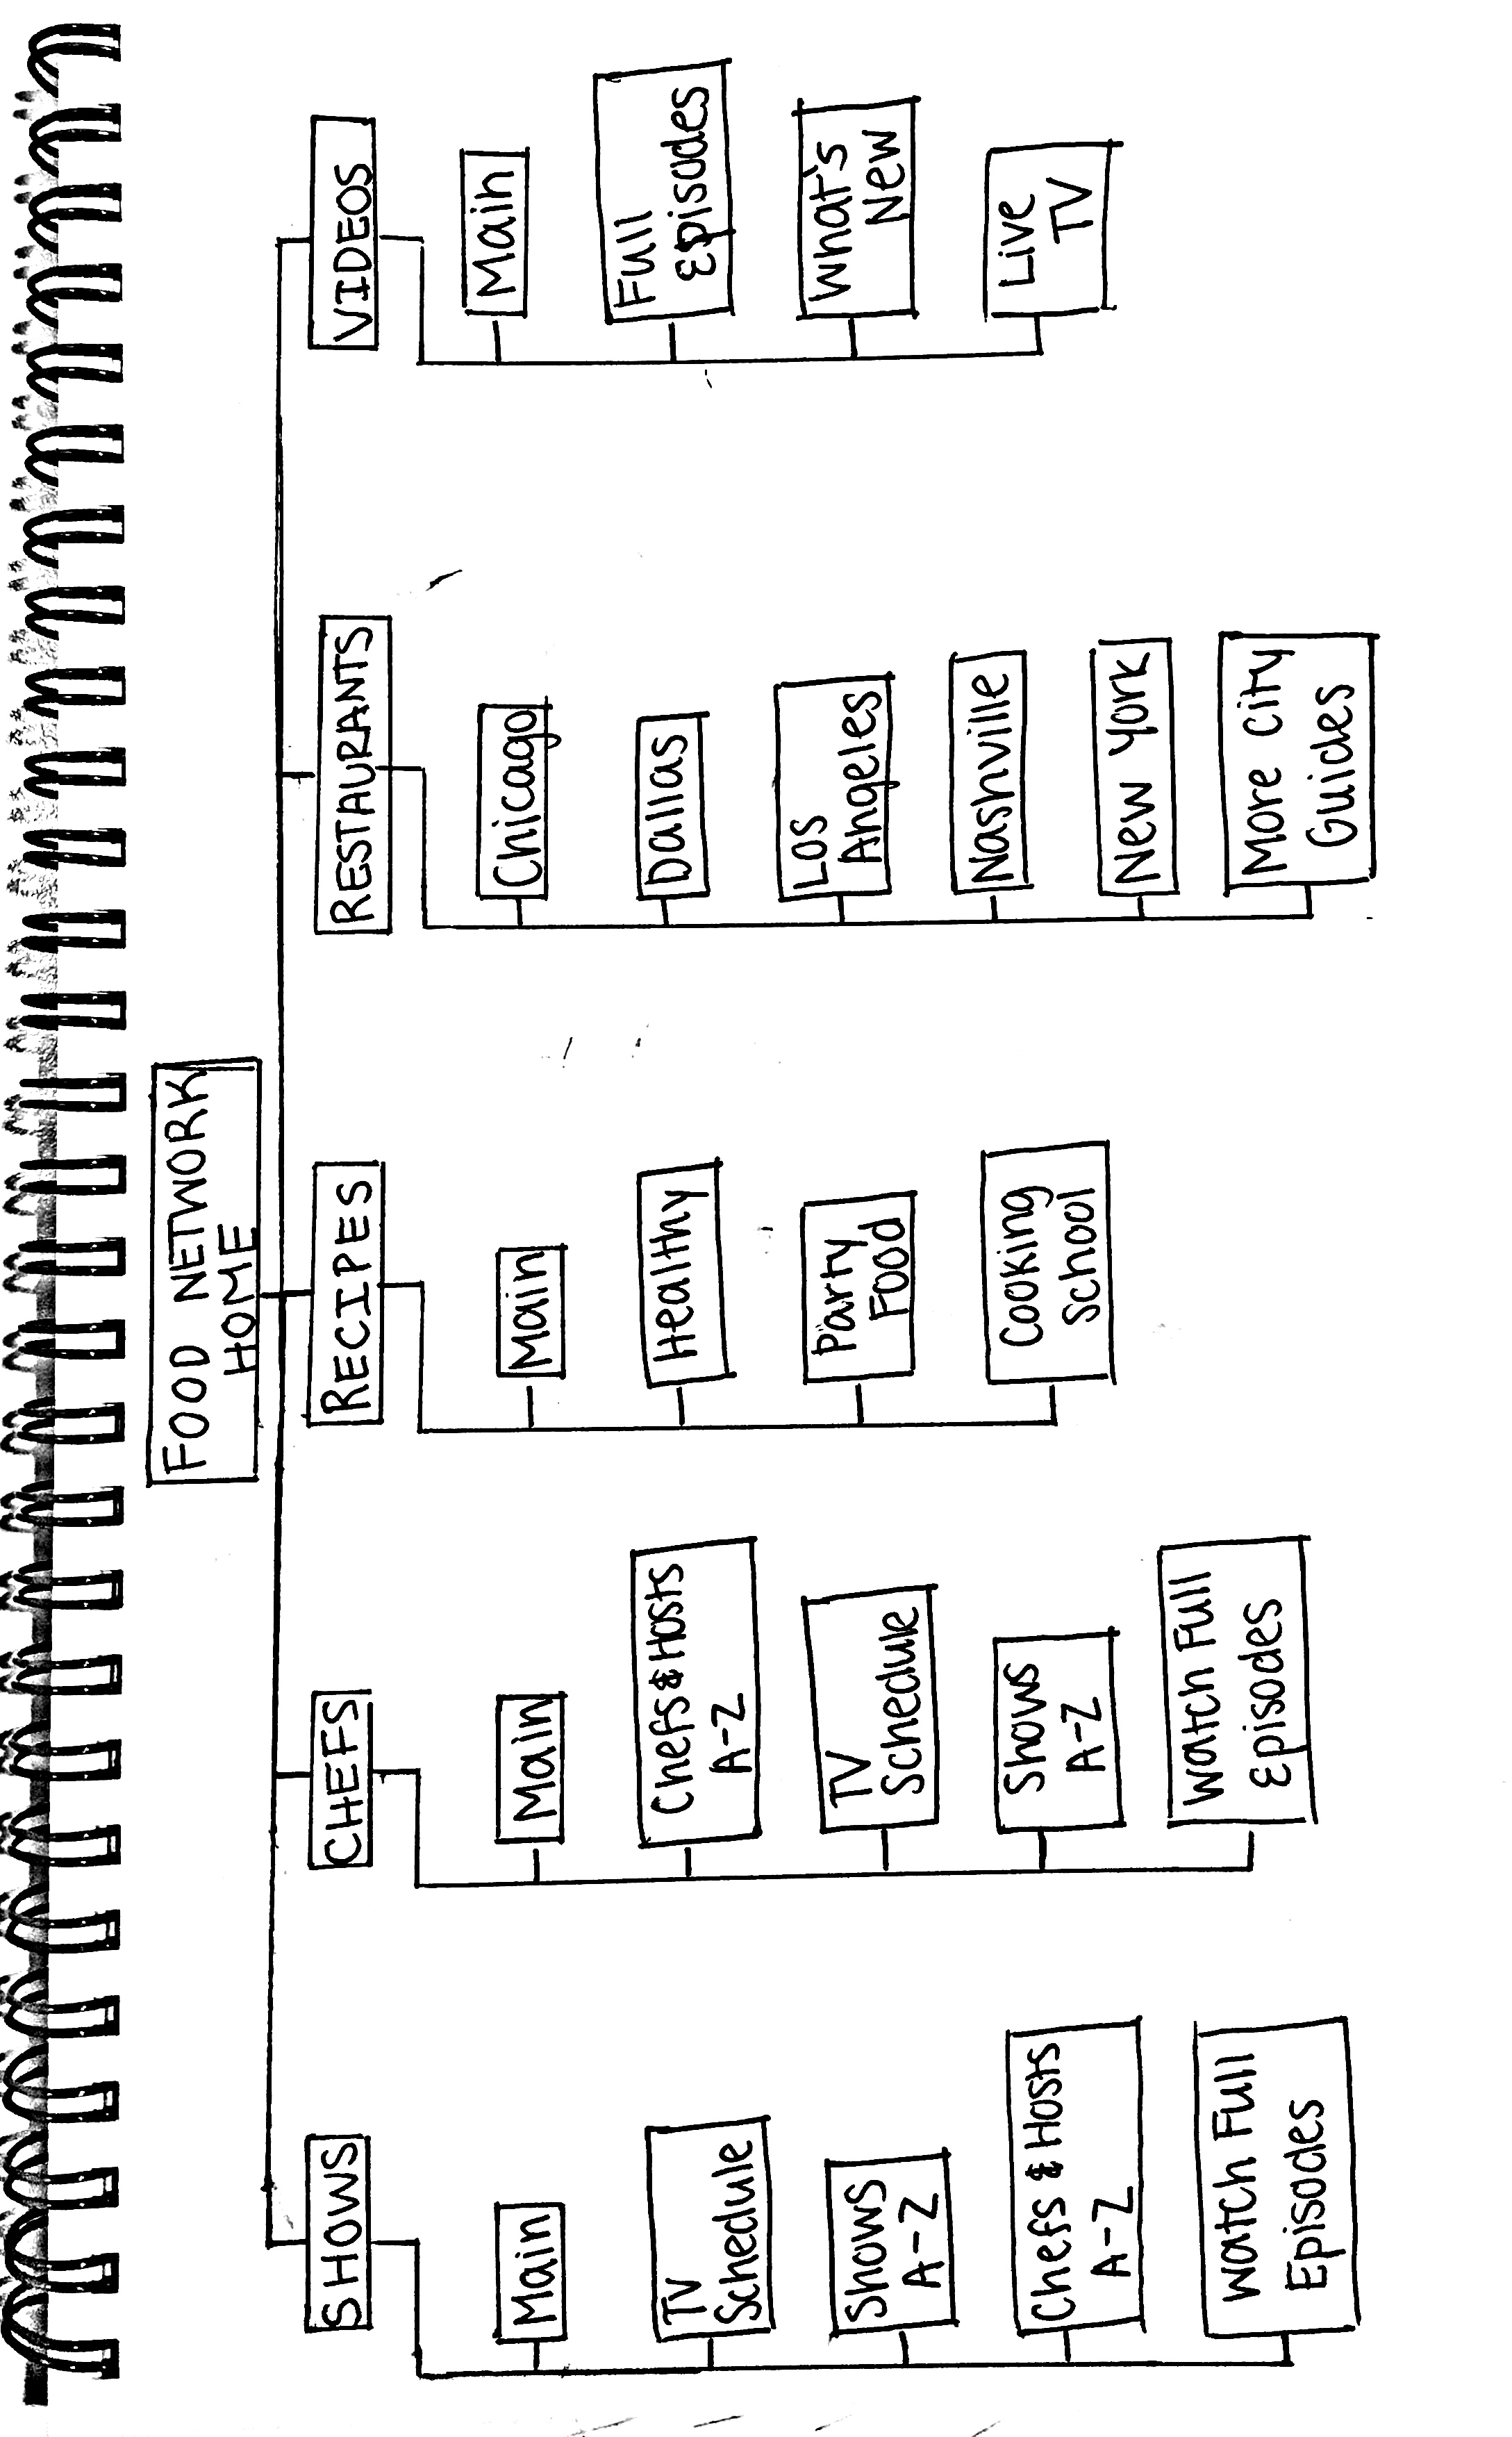 FOOD NETWORK
HOME
SHOWS
Main
TV
Schedule
Shows
A-Z
Chefs & Hosts
A-Z
Watch Full
Episodes
CHEFS
Main
Chefs & Hosts
A-Z
TV
Schedule
Shows
A-Z
Watch Full
Episodes
RECIPES
Main
Healthy
Party
Food
Cooking
School
RESTAURANTS
Chicago
Dallas
Los
Angeles
Nashville
New York
More City
Guides
VIDEOS
Main
Full
Episodes
What's
New
Live
TV